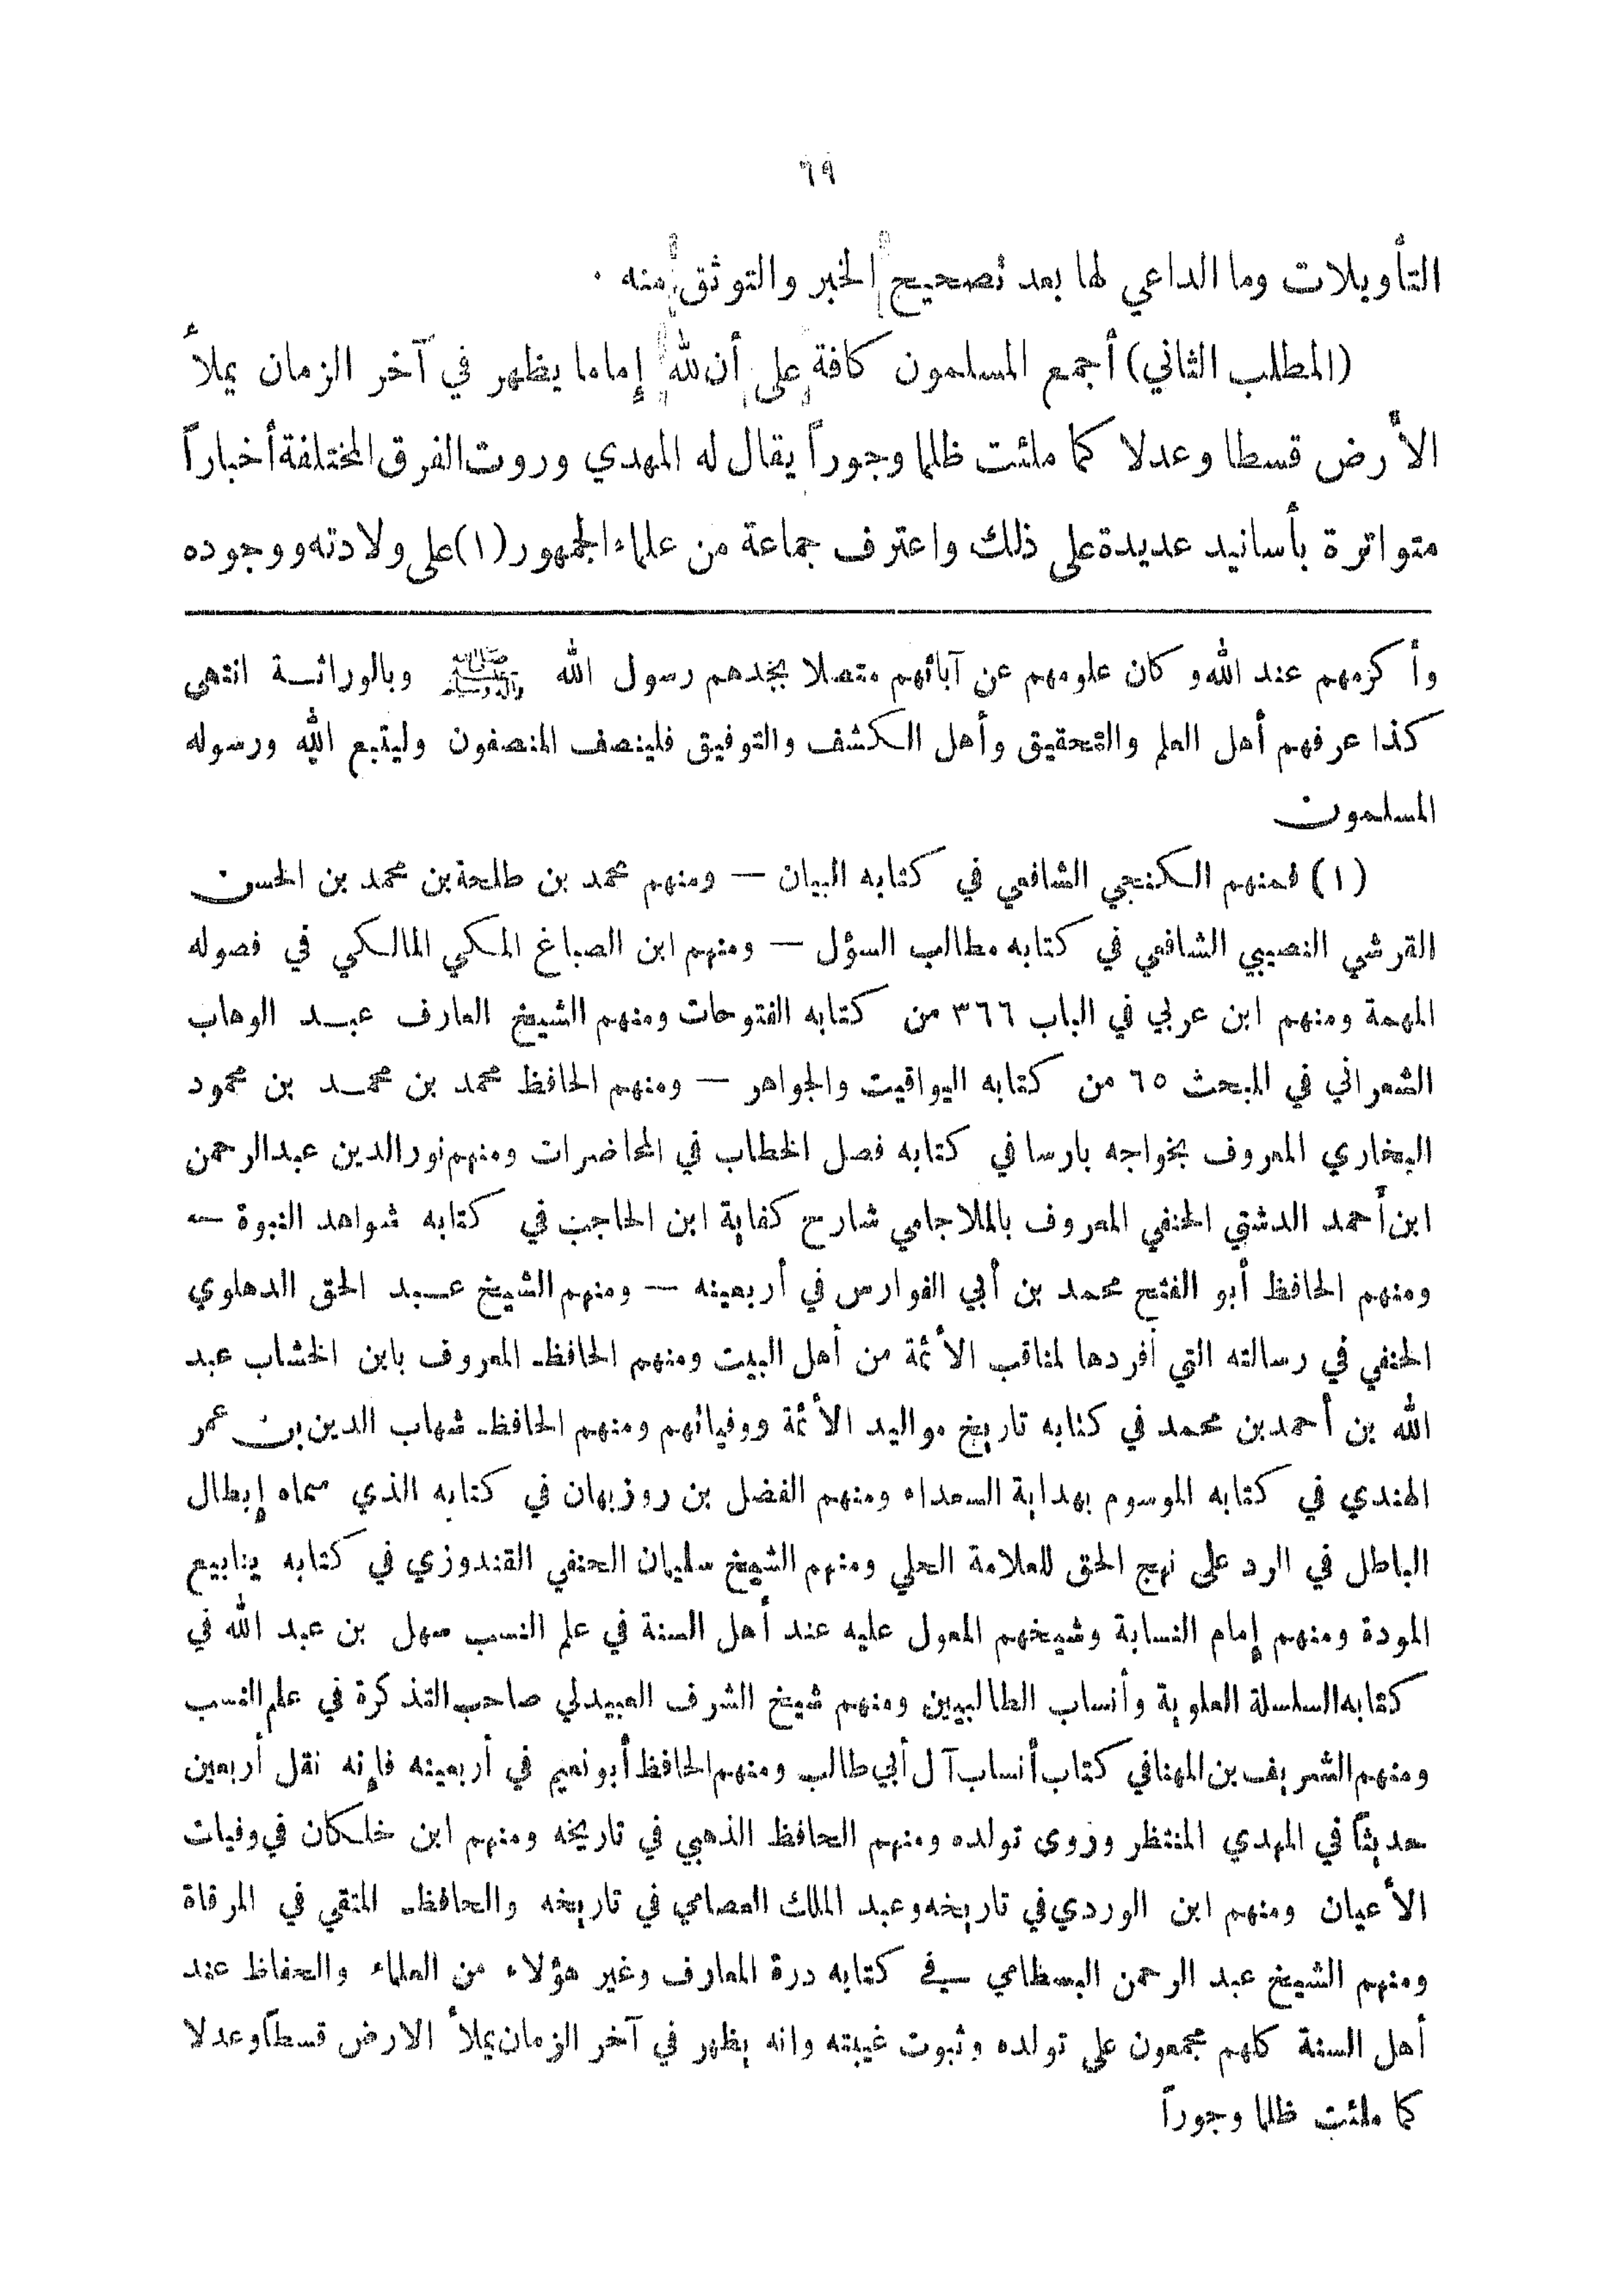 ٦٩
التأويلات وما الداعي لها بعد تصحيح الخبر والتوثق منه .
(المطلب الثاني) أجمع المسلمون كافة على أن لله إماما يظهر في آخر الزمان يملأ
الأرض قسطا وعدلا كما ملئت ظلما وجوراً يقال له المهدي وروت الفرق المختلفة أخباراً
متواترة بأسانيد عديدة على ذلك واعترف جماعة من علماء الجمهور (١) على ولادته ووجوده
وأكرمهم عند الله وكان علومهم عن آبائهم متصلا بجدهم رسول الله ﷺ وبالوراثة انتهى
كذا عرفهم أهل العلم والتحقيق وأهل الكشف والتوفيق فلينصف المنصفون وليتبع الله ورسوله
المسلمون
(١) فمنهم الكنجي الشافعي في كتابه البيان — ومنهم محمد بن طلحة بن محمد بن الحسن
القرشي النصيبي الشافعي في كتابه مطالب السؤل — ومنهم ابن الصباغ المكي المالكي في فصوله
المهمة ومنهم ابن عربي في الباب ٣٦٦ من كتابه الفتوحات ومنهم الشيخ العارف عبد الوهاب
الشعراني في المبحث ٦٥ من كتابه اليواقيت والجواهر — ومنهم الحافظ محمد بن محمد بن محمود
البخاري المعروف بخواجه بارسا في كتابه فصل الخطاب في المحاضرات ومنهم نور الدين عبدالرحمن
ابن أحمد الدشتي الحنفي المعروف بالملا جامي شارح كفاية ابن الحاجب في كتابه شواهد النبوة —
ومنهم الحافظ أبو الفتح محمد بن أبي الفوارس في أربعينه — ومنهم الشيخ عبد الحق الدهلوي
الحنفي في رسالته التي أفردها لمناقب الأئمة من أهل البيت ومنهم الحافظ المعروف بابن الخشاب عبد
الله بن أحمد بن محمد في كتابه تاريخ مواليد الأئمة ووفياتهم ومنهم الحافظ شهاب الدين بن عمر
الهندي في كتابه الموسوم بهداية السعداء ومنهم الفضل بن روزبهان في كتابه الذي سماه إبطال
الباطل في الرد على نهج الحق للعلامة الحلي ومنهم الشيخ سليمان الحنفي القندوزي في كتابه ينابيع
المودة ومنهم إمام النسابة وشيخهم المعول عليه عند أهل السنة في علم النسب سهل بن عبد الله في
كتابه السلسلة العلوية وأنساب الطالبيين ومنهم شيخ الشرف العبيدلي صاحب التذكرة في علم النسب
ومنهم الشريف بن المهنا في كتاب أنساب آل أبي طالب ومنهم الحافظ أبو نعيم في أربعينه فإنه نقل أربعين
حديثاً في المهدي المنتظر وروى تولده ومنهم الحافظ الذهبي في تاريخه ومنهم ابن خلكان في وفيات
الأعيان ومنهم ابن الوردي في تاريخه وعبد الملك العصامي في تاريخه والحافظ المتقي في المرقاة
ومنهم الشيخ عبد الرحمن البسطامي في كتابه درة المعارف وغير هؤلاء من العلماء والحفاظ عند
أهل السنة كلهم مجمعون على تولده وثبوت غيبته وانه يظهر في آخر الزمان يملأ الارض قسطاً وعدلا
كما ملئت ظلما وجوراً